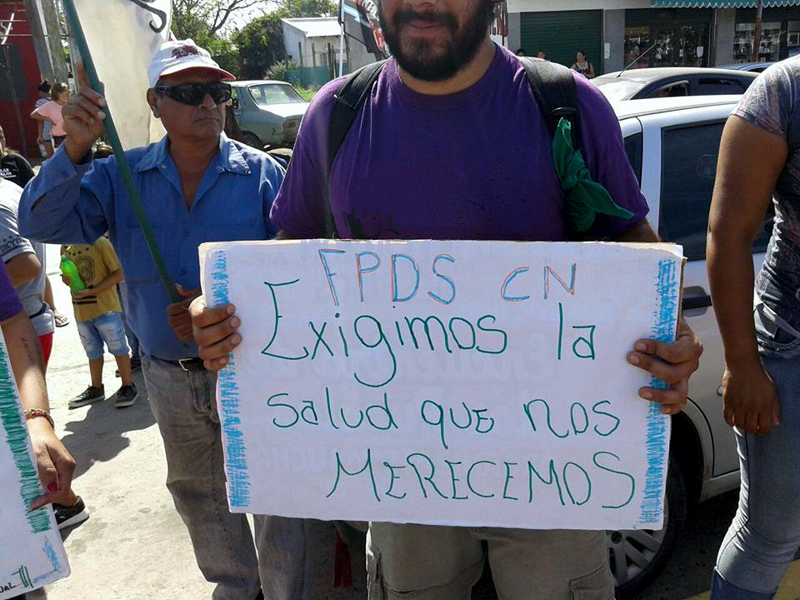 FPDS CN
Exigimos la
salud que nos
MERECEMOS